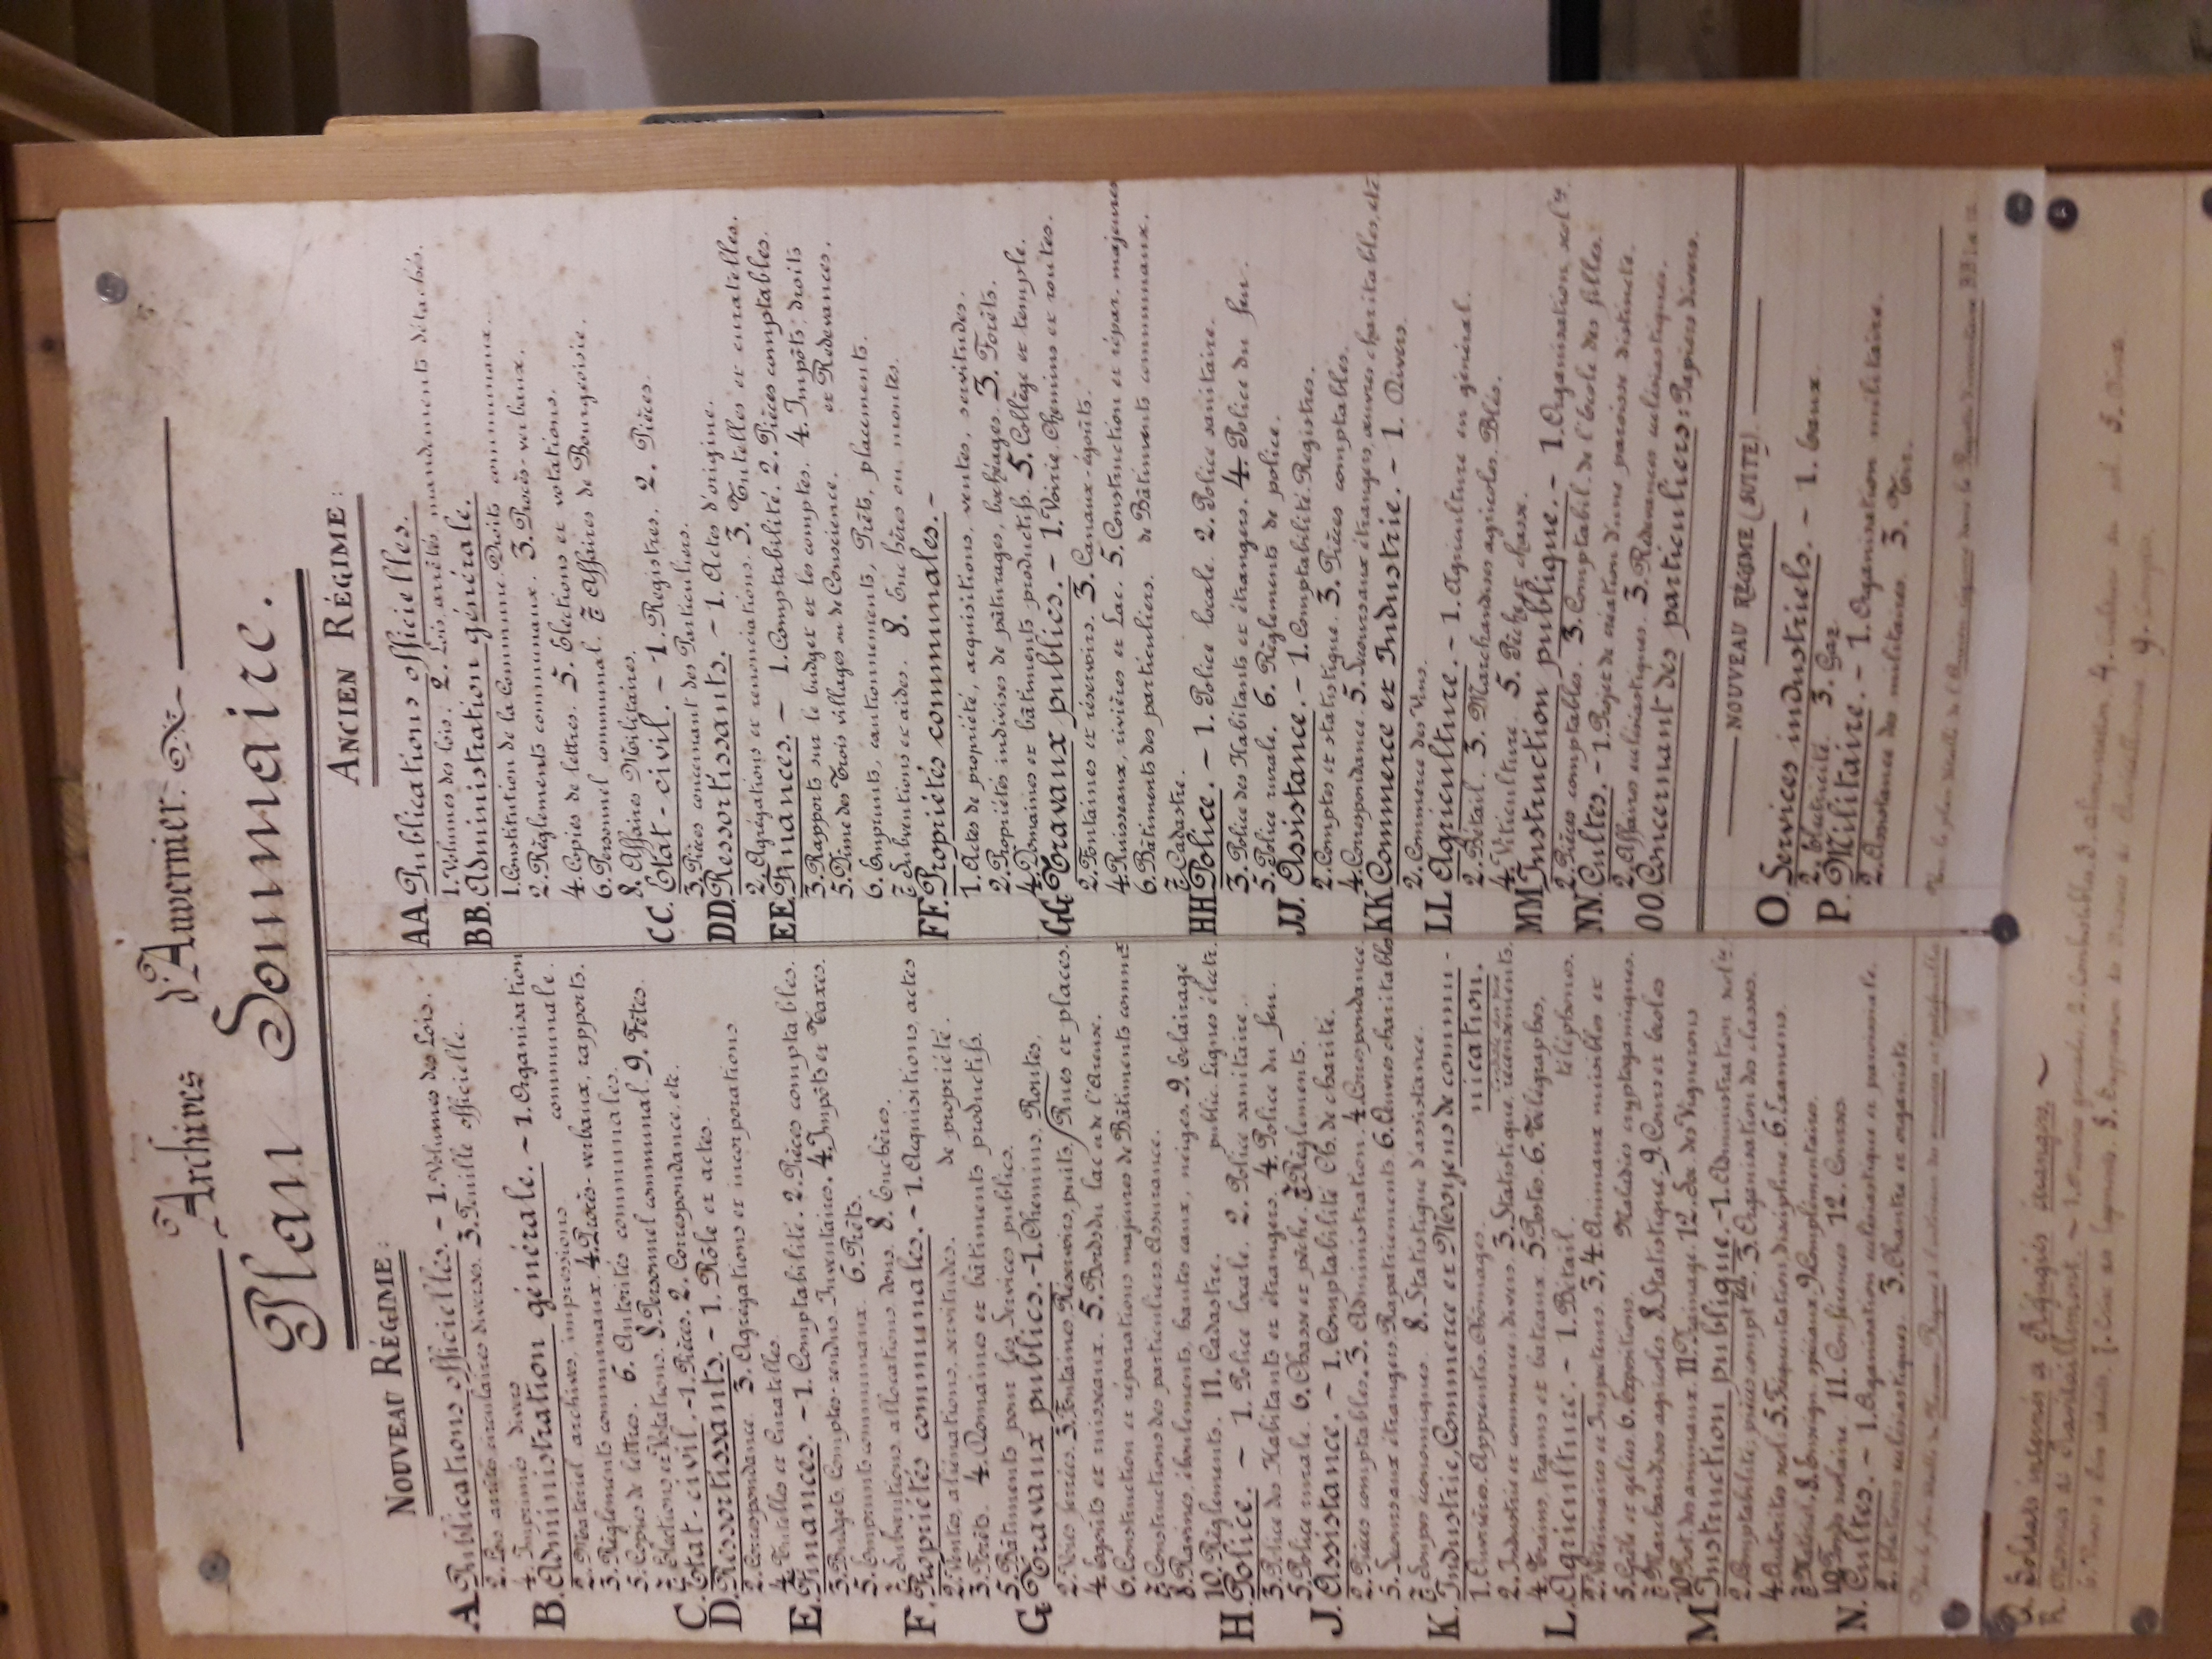 Archives d'Auvernier.
Plan Sommaire.
NOUVEAU RÉGIME:
A. Publications officielles. – 1. Volumes des Lois.
2. Lois arrêtés circulaires divers. 3. Feuille officielle.
4. Imprimés divers
B. Administration générale. – 1. Organisation
communale.
2. Matériel archives, impressions
3. Réglements communaux. 4. Procès-verbaux, rapports.
5. Copies de lettres. 6. Autorités communales.
7. Elections et Votations. 8. Personnel communal. 9. Fêtes.
C. Etat-civil. – 1. Pièces. 2. Correspondance, etc.
D. Ressortissants. – 1. Rôle et actes.
2. Correspondance. 3. Agrégations et incorporations
4. Tutelles et Curatelles.
E. Finances. – 1. Comptabilité. 2. Pièces comptables.
3. Budgets, Comptes-rendus, Inventaires. 4. Impôts et Taxes.
5. Emprunts communaux. 6. Prêts.
7. Subventions, allocations, dons. 8. Enchères.
F. Propriétés communales. – 1. Acquisitions, actes
de propriété.
2. Ventes, aliénations, servitudes.
3. Forêts. 4. Domaines et bâtiments productifs.
5. Bâtiments pour les Services publics.
G. Travaux publics. – 1. Chemins, Routes,
Rues et places.
2. Voies ferrées. 3. Fontaines, Réservoirs, puits,
4. Egoûts et ruisseaux. 5. Bords du lac et de l'Areuse.
6. Construction et réparations majeures de Bâtiments commx
7. Constructions des particuliers. Assurance.
8. Ravines, éboulements, hautes eaux, neiges. 9. Eclairage
public. Lignes électr.
10. Règlements. 11. Cadastre.
H. Police. – 1. Police locale. 2. Police sanitaire.
3. Police des Habitants et étrangers. 4. Police du feu.
5. Police rurale. 6. Chasse et pêche. 7. Règlements.
J. Assistance. – 1. Comptabilité Ch. de charité.
2. Pièces comptables. 3. Administration. 4. Correspondance
5. Secours aux étrangers. Rapatriements. 6. Œuvres charitables
7. Soupes économiques. 8. Statistique d'assistance.
K. Industrie, Commerce et Moyens de communication.
1. Ouvriers. Apprentis. Chômages.
2. Industrie et commerce: divers. 3. Statistique, recensements.
4. Trains, trams et bateaux. 5. Postes. 6. Télégraphes,
téléphones.
L. Agriculture. – 1. Bétail.
2. Vétérinaires et Inspecteurs. 3. 4. Animaux nuisibles et
Maladies cryptogamiques.
5. Grêle et gelées 6. Expositions.
7. Marchandises agricoles. 8. Statistique. 9. Cours et écoles
10. Prot. des animaux. 11. Drainage. 12. Soc. des Vignerons
M. Instruction publique. – 1. Administration scolre
2. Comptabilité, pièces comptables. 3. Organisation des classes.
4. Autorités scol. 5. Fréquentation, discipline. 6. Examens.
7. Matériel. 8. Enseign. spéciaux. 9. Complémentaires.
10. Fonds scolaire 11. Conférences 12. Courses
N. Cultes. – 1. Organisation ecclésiastique et paroissiale.
2. Elections ecclésiastiques. 3. Chantre et organiste.
ANCIEN RÉGIME:
AA. Publications officielles.
1. Volumes des lois. 2. Lois, arrêtés, mandements détachés.
BB. Administration générale.
1. Constitution de la Commune. Droits communaux.
2. Règlements communaux. 3. Procès-verbaux.
4. Copies de lettres. 5. Elections et votations.
6. Personnel communal. 7. Affaires de Bourgeoisie.
8. Affaires Militaires.
CC. Etat-civil. – 1. Registres. 2. Pièces.
3. Pièces concernant des Particuliers.
DD. Ressortissants. – 1. Actes d'origine.
2. Agrégations et renonciations. 3. Tutelles et curatelles.
EE. Finances. – 1. Comptabilité. 2. Pièces comptables.
3. Rapports sur le budget et les comptes. 4. Impôts, droits
et Redevances.
5. Dîme des Trois villages ou de Conscience.
6. Emprunts, cautionnements, Prêts, placements.
7. Subventions et aides. 8. Enchères ou montes.
FF. Propriétés communales. –
1. Actes de propriété, acquisitions, ventes, servitudes.
2. Propriétés indivises de pâturages, bochéages. 3. Forêts.
4. Domaines et bâtiments productifs. 5. Collège et temple.
GG. Travaux publics. – 1. Voirie. Chemins et routes.
2. Fontaines et réservoirs. 3. Canaux-égoûts.
4. Ruisseaux, rivières et Lac. 5. Construction et répar. majeures
de Bâtiments communaux.
6. Bâtiments des particuliers.
7. Cadastre.
HH. Police. – 1. Police locale. 2. Police sanitaire.
3. Police des Habitants et étrangers. 4. Police du feu.
5. Police rurale. 6. Règlements de police.
JJ. Assistance. – 1. Comptabilité. Registres.
2. Comptes et statistique. 3. Pièces comptables.
4. Correspondance. 5. Secours aux étrangers, œuvres charitables, etc
KK. Commerce et Industrie. – 1. Divers.
2. Commerce des Vins.
LL. Agriculture. – 1. Agriculture en général.
2. Bétail. 3. Marchandises agricoles. Blés.
4. Viticulture. 5. Pêche et chasse.
MM. Instruction publique. – 1. Organisation scolre
2. Pièces comptables. 3. Comptabil. de l'Ecole des filles.
NN. Cultes. – 1. Projet de création d'une paroisse distincte.
2. Affaires ecclésiastiques. 3. Redevances ecclésiastiques.
OO. Concernant des particuliers: Papiers divers.
NOUVEAU RÉGIME (SUITE)
O. Services industriels. – 1. Eaux.
2. Electricité 3. Gaz
P. Militaire. – 1. Organisation militaire.
2. Assistance des militaires. 3. Tir.
Q. Soldats internés et Réfugiés étrangers.
R. Mesures de Ravitaillement.